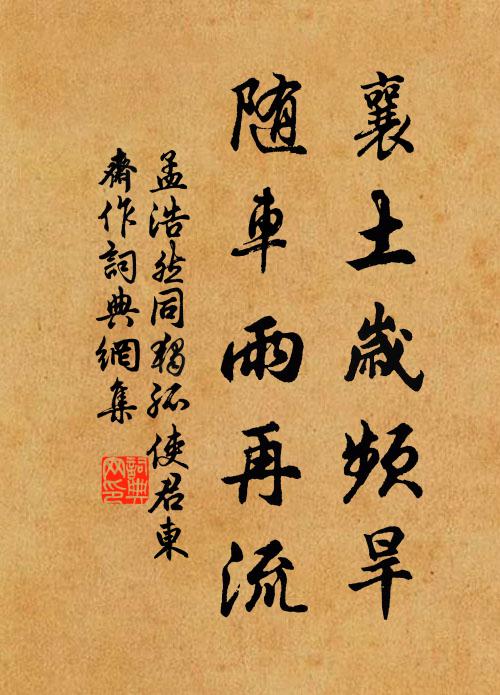 襄土歲頻旱
随車雨再流
孟浩然同獨孤使君東
齋作詞典網集
詞典
网印